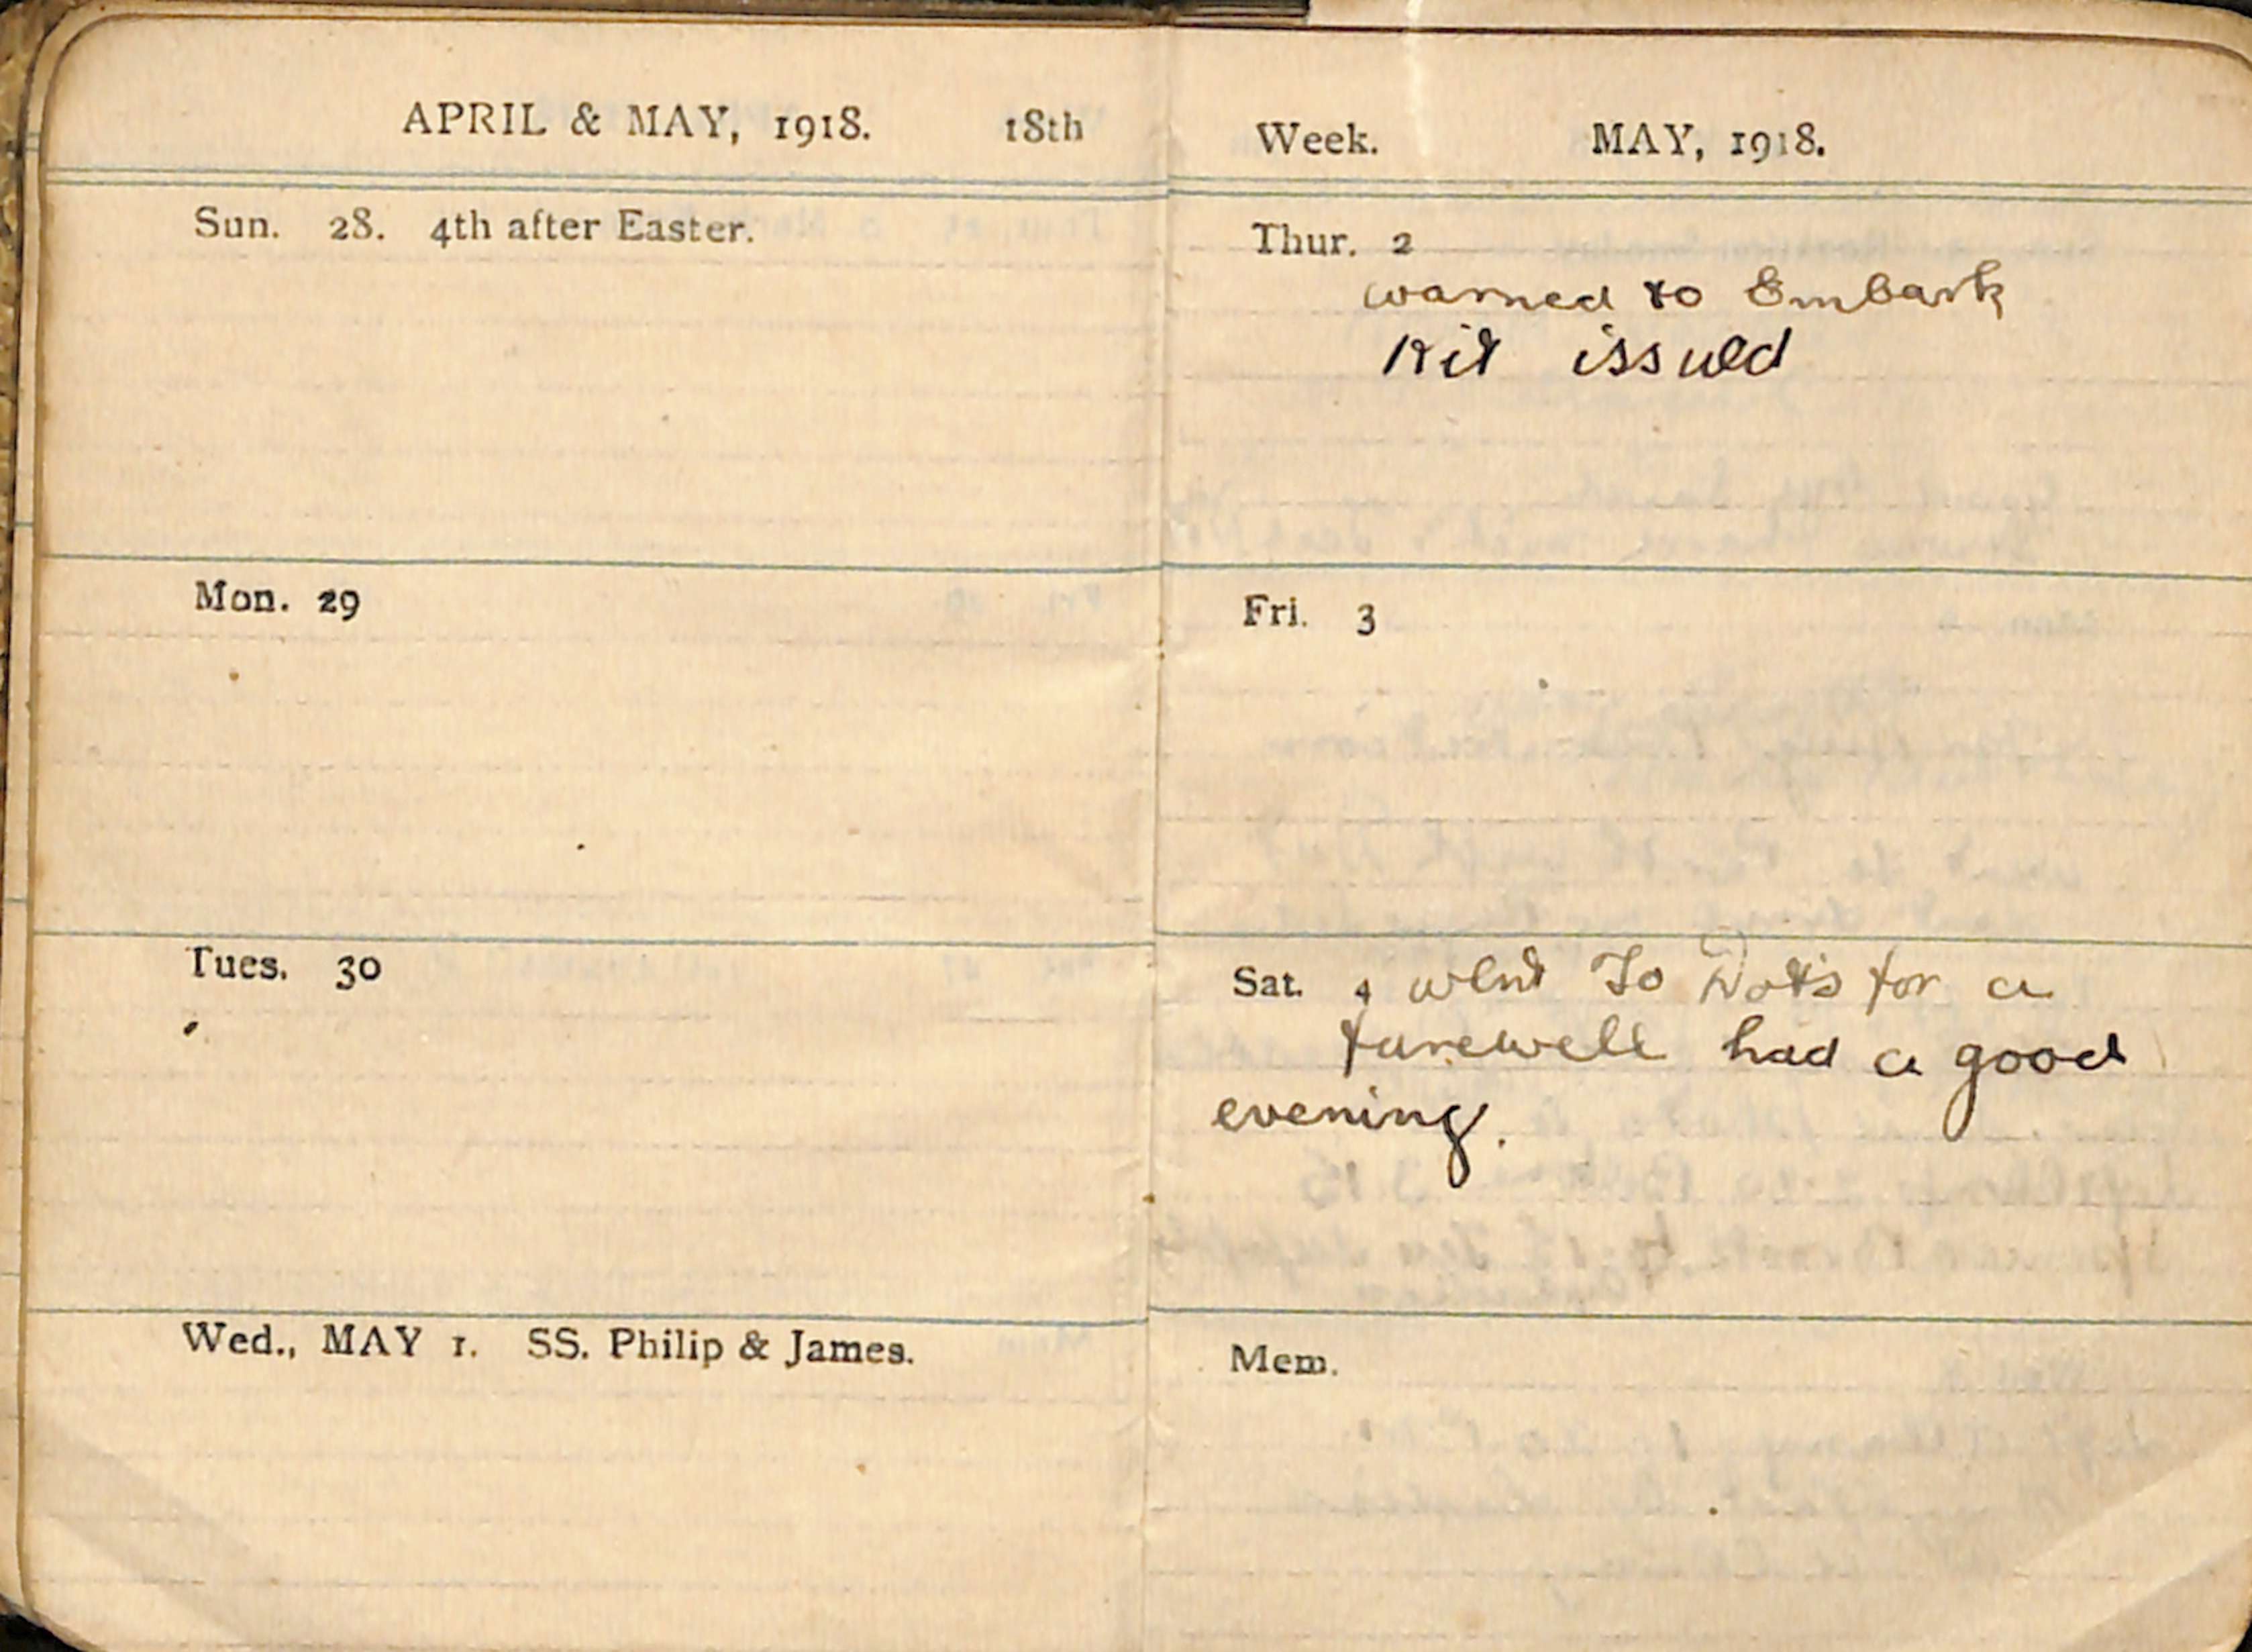 APRIL & MAY, 1918. 18th
Sun. 28. 4th after Easter.
Mon. 29
Tues. 30
Wed., MAY 1. SS. Philip & James.
Week. MAY, 1918.
Thur. 2
warned to Embark
Kit issued
Fri. 3
Sat. 4 went To Dot's for a
farewell had a good
evening.
Mem.